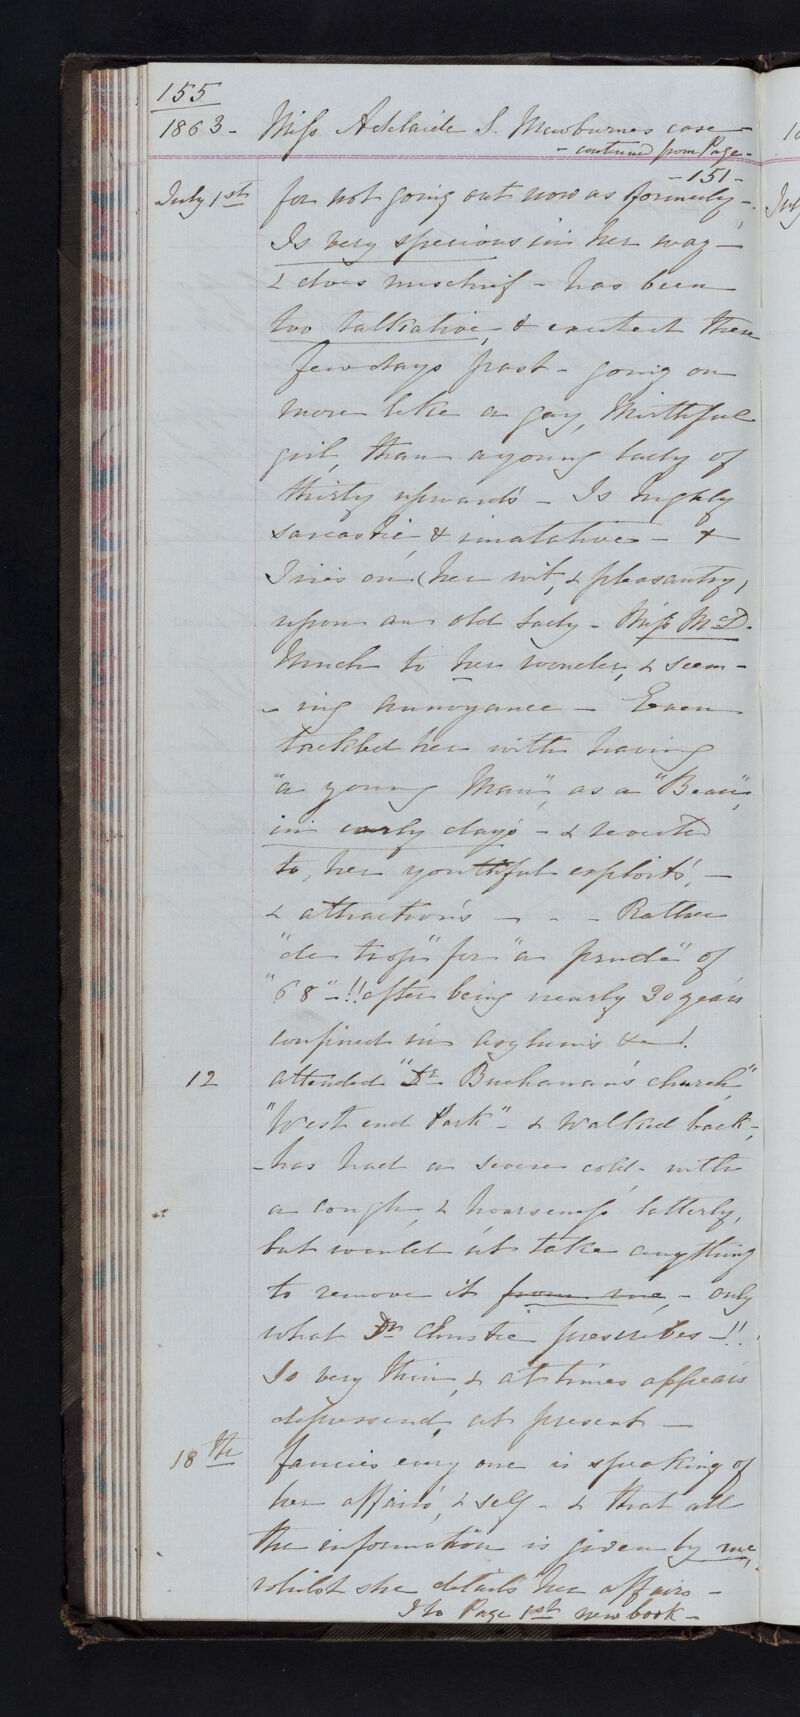 155
1863- Miss Adelaide S. Mewburnes case-
- continued from Page-
- 151 -
July 1st for not going out now as formerly -
Is very specious in her way -
& does mischief - has been
too talkative, & excited these
few days past - going on
more like a gay, Mirthful
girl, than a young lady of
thirty upwards - Is highly
sarcastic, & imatative - &
Tries on (her wit, & pleasantry,
upon an old Lady - Miss McD.
Much to her wonder, & seem-
- ing annoyance - Even
twitted her with having
"a young Man", as a "Beau",
in early days - & reverted
to, her youthful exploits, -
& attractions - - - Rather
"de trop" for "a prude" of
"68" - !! after being nearly 30 years
confined in Asylums &c !.
12 attended "Dr Buchanan's church,"
"West end Park" - & Walked back -,
- has had a severe cold - with
a cough, & hoarseness latterly,
but would nt take anything
to remove it from me, - only
what Dr Christie prescribes - !!
Is very thin, & at times appears
depressend, at present -
18th fancies every one is speaking of
her affairs, & self - & that all
the information is given by me,
whilst she details her affairs -
to Page 1st new book -